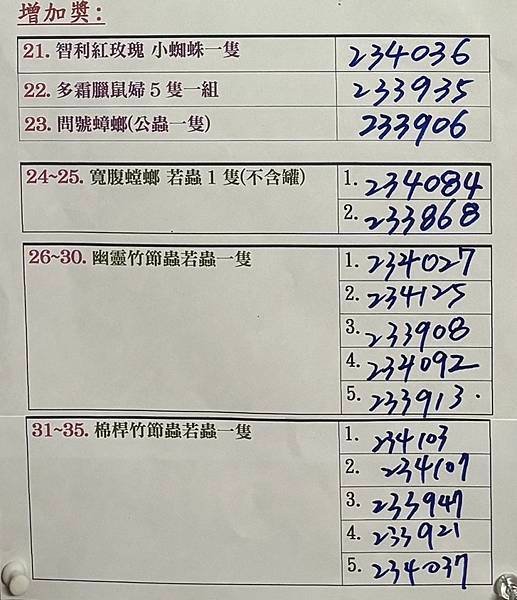 增加獎:
21. 智利紅玫瑰 小蜘蛛一隻 234036
22. 多霜臘鼠婦 5 隻一組 233935
23. 問號蟑螂(公蟲一隻) 233906
24~25. 寬腹螳螂 若蟲 1 隻(不含罐) 1. 234084
2. 233868
26~30. 幽靈竹節蟲若蟲一隻 1. 234027
2. 234125
3. 233908
4. 234092
5. 233913.
31~35. 棉桿竹節蟲若蟲一隻 1. 234103
2. 234107
3. 233947
4. 233921
5. 234037